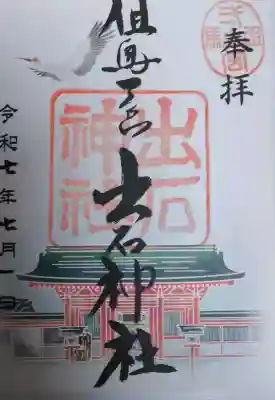 奉拝
但馬一宮
出石神社
出石
神社
令和七年七月一日